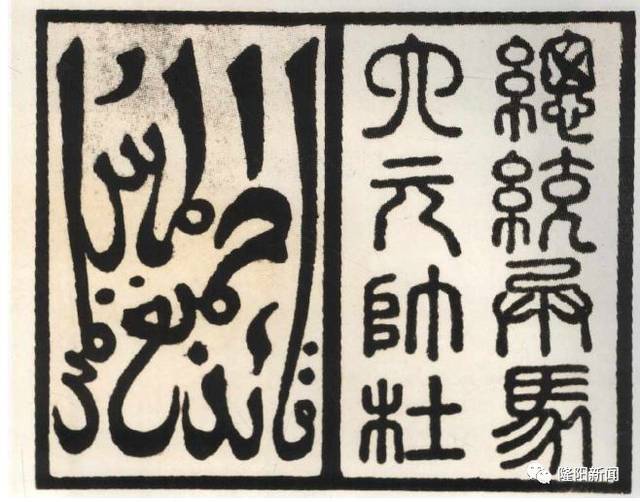 總統兵馬
大元帥杜
قائد جميع المسلمين
隆阳新闻